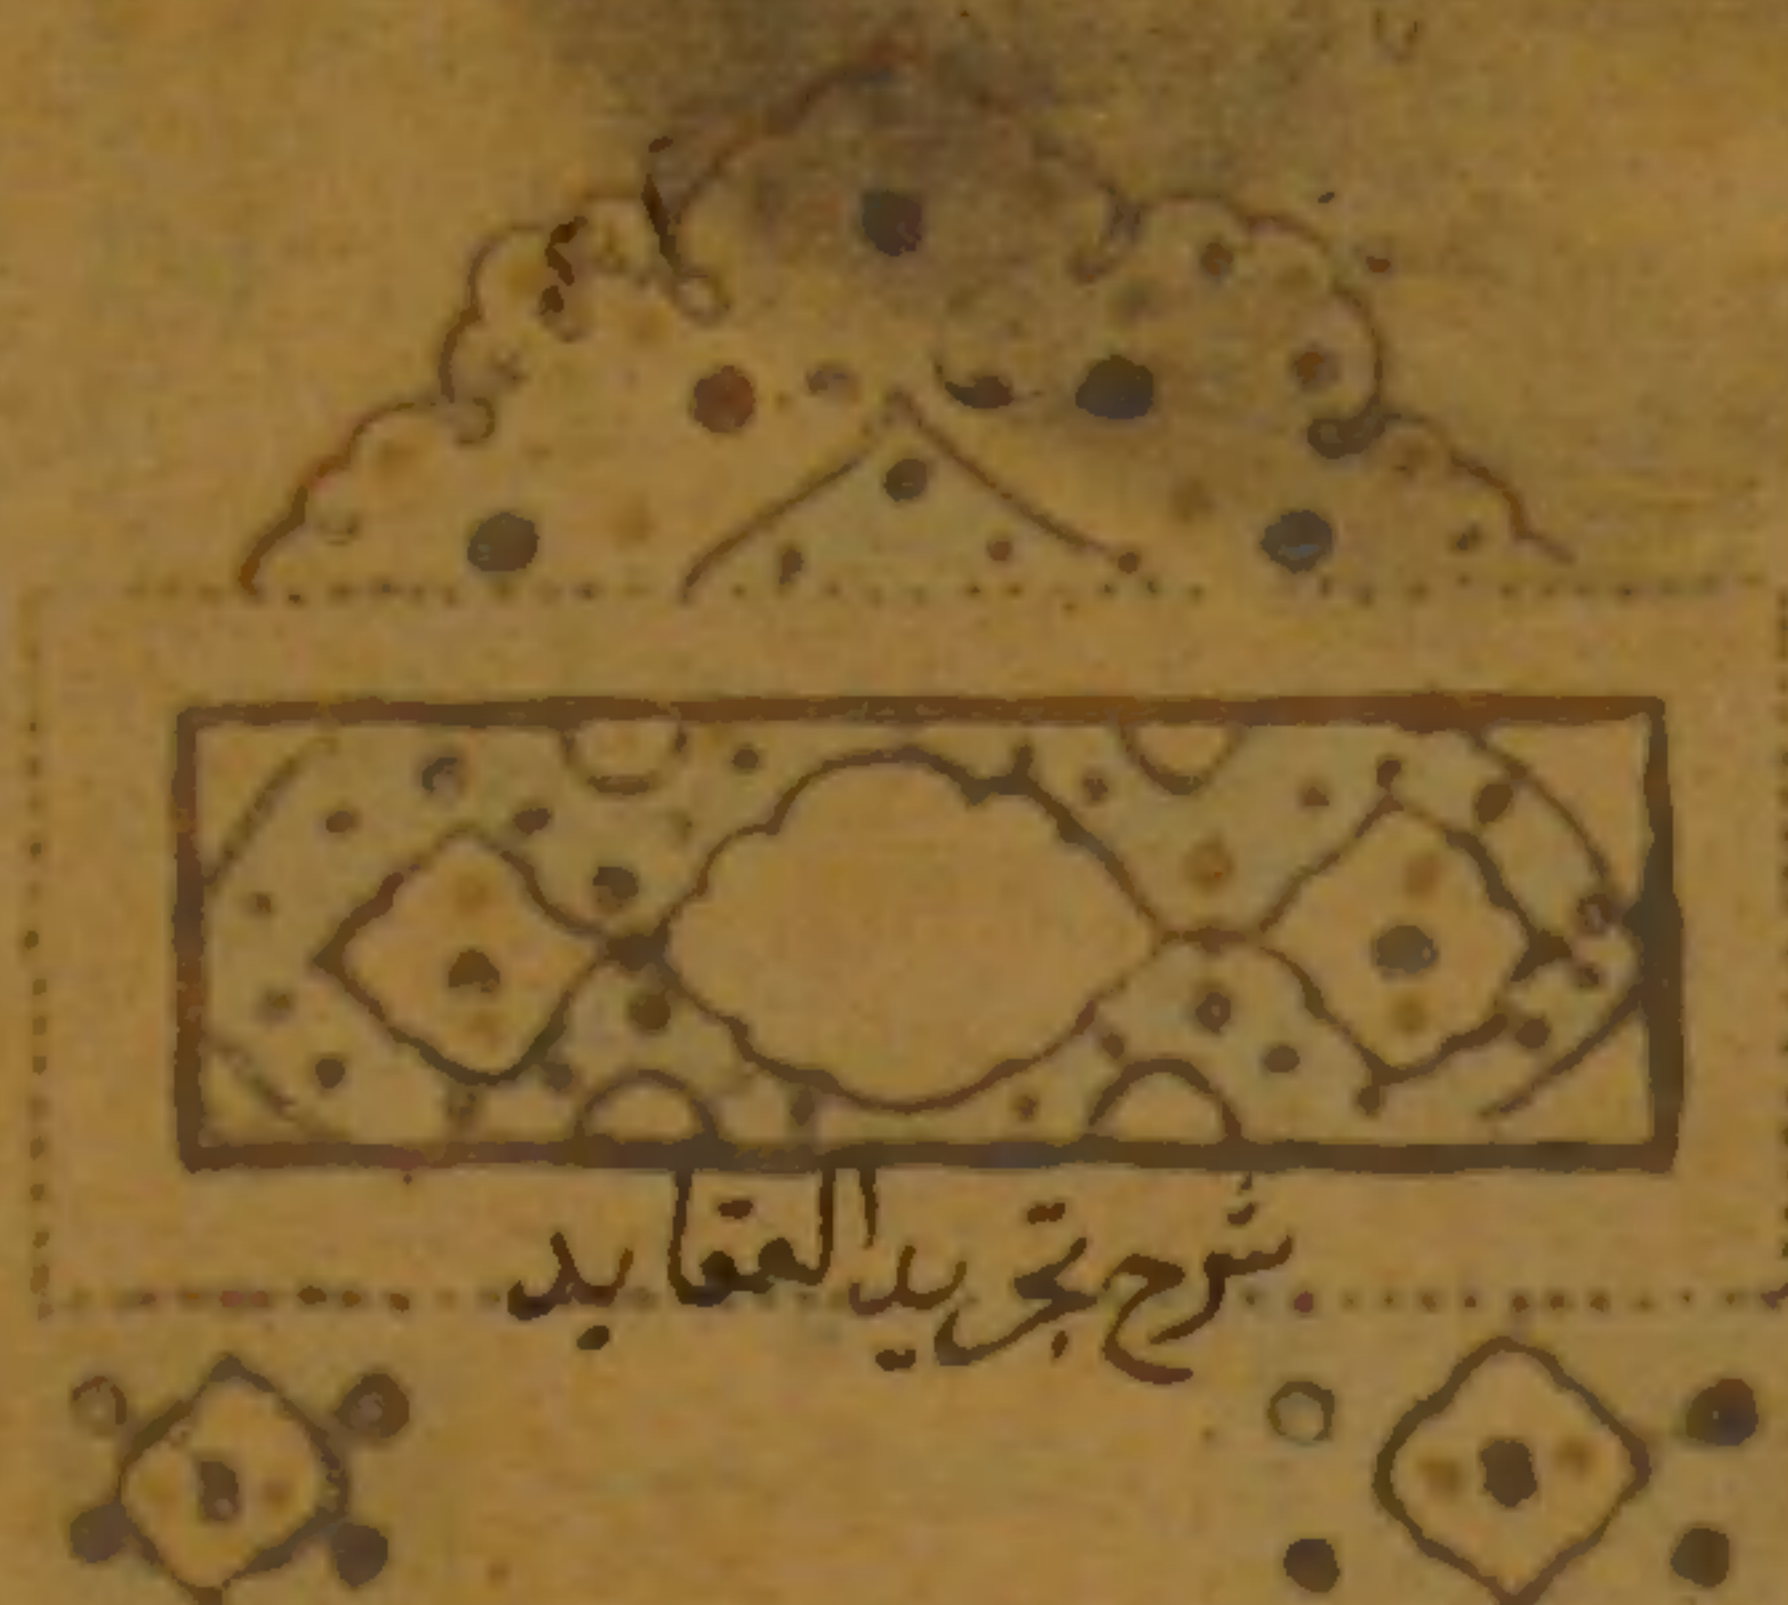 شرح تجريد العقايد